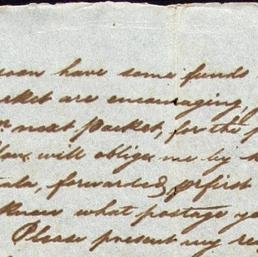 soon have some funds
market are encouraging,
next packet, for the
will oblige me by
forwarded pr first
know what postage
Please present my